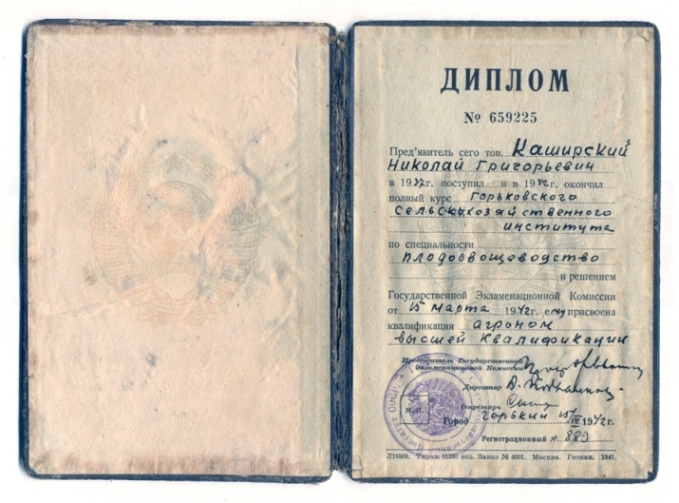 ДИПЛОМ
№ 659225
Пред'явитель сего тов. Каширский
Николай Григорьевич
в 1942г. поступил и в 1942г. окончил
полный курс Горьковского
Сельскохозяйственного
института
по специальности
плодоовощеводство
и решением
Государственной Экзаменационной Комиссии
от 15 марта 1942г. ему присвоена
квалификация агроном
высшей квалификации
Председатель Государственной
Экзаменационной Комиссии
Директор
Секретарь
Город Горький 15/III 1942г.
Регистрационный № 889
Москва. Гознак. 1941.